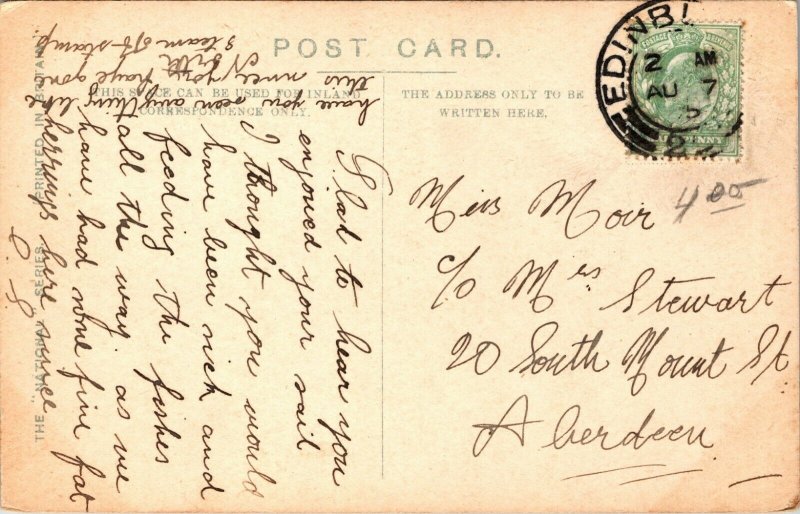 POST CARD.
THIS SPACE CAN BE USED FOR INLAND
CORRESPONDENCE ONLY.
THE ADDRESS ONLY TO BE
WRITTEN HERE.
THE "NATIONAL" SERIES.
PRINTED IN BRITAIN
EDINBU
2 AM
AU 7
5
2
POSTAGE
PENNY
4 00
Miss Moir
c/o Mrs Stewart
20 South Mount St
Aberdeen
Glad to hear you
enjoyed your sail
I thought you would
have been sick and
feeding the fishes
all the way. as we
have had some fine fat
herrings here since
C. S.
have you seen anything like
this
N
steam off stamp.